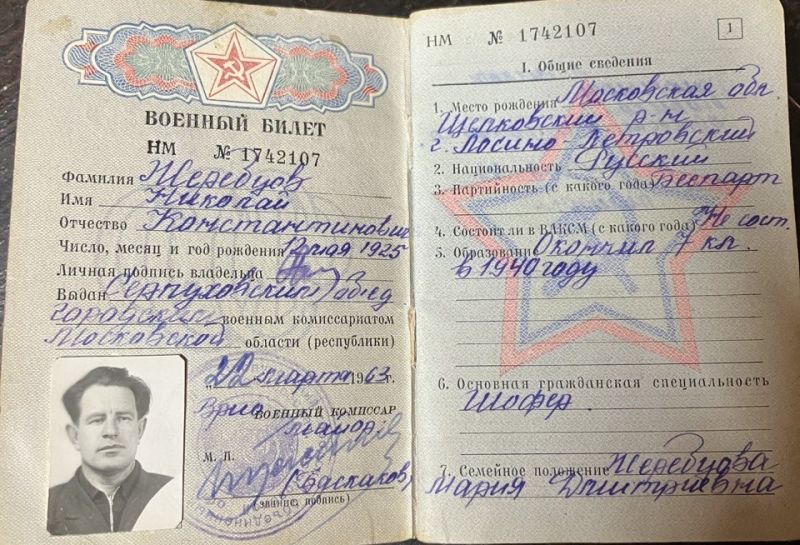 ВОЕННЫЙ БИЛЕТ
НМ № 1742107
Фамилия Жеребцов
Имя Николай
Отчество Константинович
Число, месяц и год рождения 12 мая 1925
Личная подпись владельца
Выдан Серпуховским об'ед
городским военным комиссариатом
Московской области (республики)
22 марта 1963 г.
Врио ВОЕННЫЙ КОМИССАР
майор
М. П.
(Баскаков)
(звание, подпись)
НМ № 1742107 1
I. Общие сведения
1. Место рождения Московская обл
Щелковский р-н
г. Лосино-Петровский
2. Национальность Русский
3. Партийность (с какого года) Беспарт
4. Состоит ли в ВЛКСМ (с какого года) Не сост.
5. Образование Окончил 7 кл.
в 1940 году
6. Основная гражданская специальность
Шофер.
7. Семейное положение Жеребцова
Мария Дмитриевна